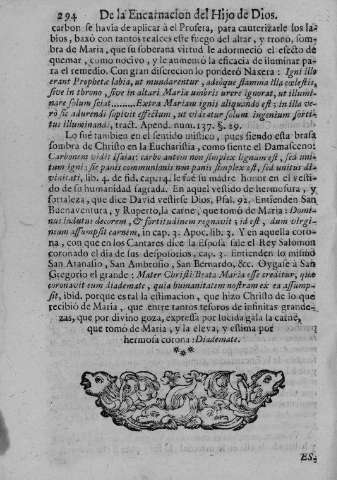 294 De la Encarnacion del Hijo de Dios.
carbon se havia de aplicar à el Profeta, para cauterizarle los la-
bios, baxó con tantos realces este fuego del altar, y trono, som-
bra de Maria, que su soberana virtud le adormeció el efecto de
quemar, como nocivo, y le aumentò la eficacia de iluminar pa-
ra el remedio. Con gran discrecion lo ponderó Naxera: Igni illo
erant Prophetæ labia, ut mundarentur, adeòque flamma illa cœlestis,
sive in throno, sive in altari Mariæ umbris urere ignorat, ut illumi-
nare solum sciat........Extra Mariam ignis aliquando est; in illa ve-
rò sic adurendi sapivit effectum, ut vidatur solum ingenium sorti-
tus illuminandi, tract. Apend. num. 137. §. 29.
Lo fuè tambien en el sentido mistico, pues siendo esta brasa
sombra de Christo en la Eucharistia, como siente el Damasceno:
Carbonem vidit Isaias: carbo autem non simplex lignum est, sed uni-
tum igni: sic panis communionis non panis simplex est, sed unitus di-
vinitati, lib. 4. de fid. cap. 14. le fuè su madre honor en el vesti-
do de su humanidad sagrada. En aquel vestido de hermosura, y
fortaleza, que dice David vestirse Dios, Psal. 92. Entienden San
Buenaventura, y Ruperto, la carne, que tomó de Maria: Domi-
nus indutus decorem, & fortitudinem regnavit; id est, dum ex Vrgi-
nem assumpsit carnem, in cap. 3. Apoc. lib. 3. Y en aquella coro-
na, con que en los Cantares dice la Esposa sale el Rey Salomon
coronado el dia de sus desposorios, cap. 3. Entienden lo mismo
San Atanasio, San Ambrosio, San Bernardo, &c. Oygase à San
Gregorio el grande: Mater Christi Beata Maria esse creditur, quæ
coronavit eum diademate, quia humanitatem nostram ex ea assump-
sit, ibid. porque es tal la estimacion, que hizo Christo de lo que
recibió de Maria, que entre tantos tesoros de infinitas grande-
zas, que por divino goza, expressa por lucida gala la carne,
que tomó de Maria, y la eleva, y estima por
hermosa corona: Diademate.
***
ES-